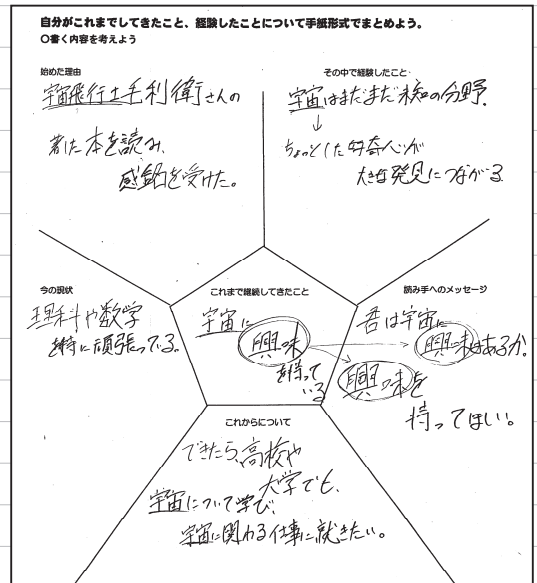 自分がこれまでしてきたこと、経験したことについて手紙形式でまとめよう。
○書く内容を考えよう
始めた理由
宇宙飛行士毛利衛さんの
著した本を読み、
感銘を受けた。
その中で経験したこと
宇宙はまだまだ未知の分野。
↓
ちょっとした好奇心が
大きな発見につながる
今の現状
理科や数学
を特に頑張っている。
これまで継続してきたこと
宇宙に
興味
を持って
いる
読み手へのメッセージ
君は宇宙に
興味はあるか。
興味を
持ってほしい。
これからについて
できたら、高校や
大学でも、
宇宙について学び、
宇宙に関わる仕事に就きたい。